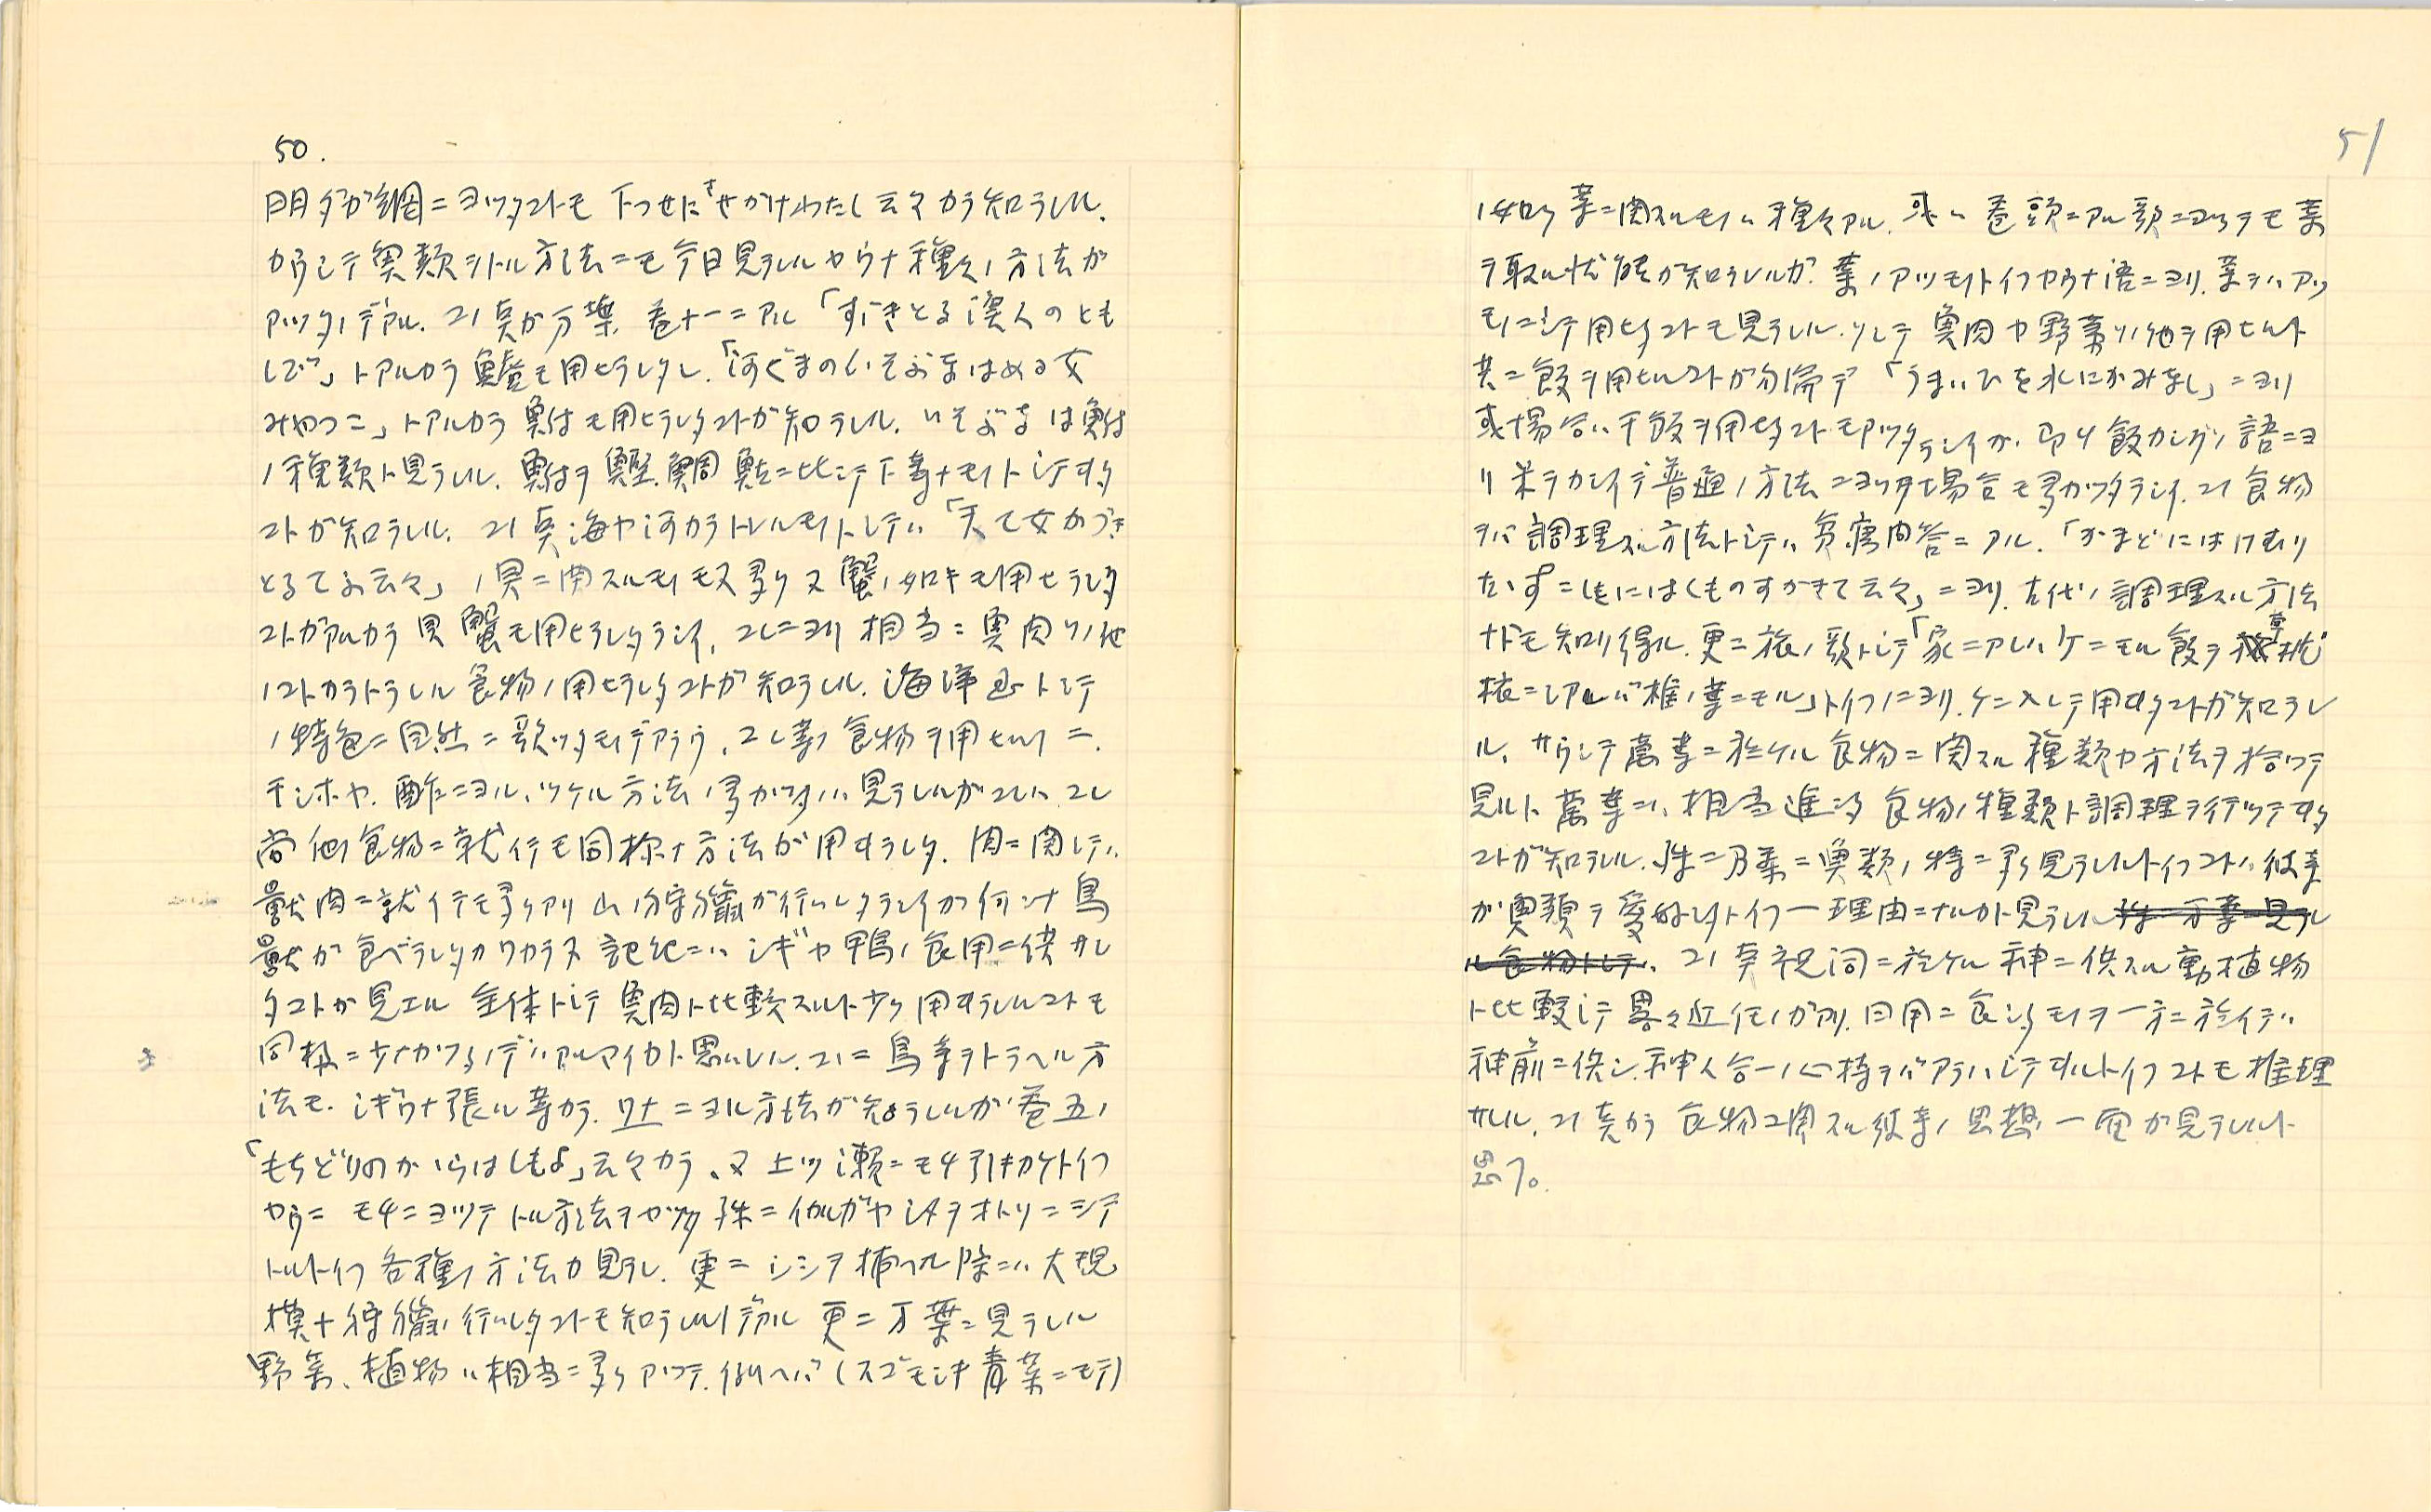 50.
明ダガ網ニヨツタコトモ 下つせにさせかけわたし云々カラ知ラレル.
カウシテ魚類ヲトル方法ニモ今日見ラレルヤウナ種々ノ方法ガ
アツタノデアル. コノ点ガ万葉 巻十一ニアル「すゞきとる漁人のとも
しび」トアルカラ鱸モ用ヒラレタシ.「河ぐまの
みやつこ」トアルカラ鮒モ用ヒラレタコトガ知ラレル. は鮒
ノ種類ト見ラレル. 鮒ヲ鰹.鯛 ニ比シテ下等ナモノトシテヰタ
コトガ知ラレル. コノ点海ヤ河カラトレルモノトシテハ「 女かづき
とる 云々」ノ貝ニ関スルモノモ又多ク又蟹ノ如キモ用ヒラレタ
コトガアルカラ貝 蟹モ用ヒラレタラシイ. コレニヨリ相当ニ魚肉ソノ他
ノコトカラトラレル食物ノ用ヒラレタコトガ知ラレル. 海 トシテ
ノ特色ニ自然ニ歌ツタモノデアラウ. コレ等ノ食物ヲ用ヒルノニ.
ヤ. 酢ニヨル、ツケル方法ノ多カツタノハ見ラレルガコレハ コレ
尚他ノ食物ニ就イテモ同様ナ方法ガ用ヰラレタ. 肉ニ関シテハ.
獣肉ニ就イテモ多クアリ山ノ狩猟ガ行ハレタラシイガ何ンナ鳥
獣ガ食ベラレタカワカラヌ 記紀ニハシギヤ鴨ノ食用ニ供サレ
タコトガ見エル 全体トシテ魚肉ト比較スルト少ク用ヰラレルコトモ
同様ニ少ナカツタノデハアルマイカト思ハレル. コノニ鳥等ヲトラヘル方
法モ. シギワナ張ル等カラ. ワナニヨル方法ガ知ラレルガ巻五ノ
「もちどりのかゝらはしもよ」云々カラ、又上ツ瀬ニモチ引キカケトイフ
ヤウニ モチニヨツテトル方法ヲヤツタ 殊ニイカルガヤシメヲオトリニシテ
トルトイフ各種ノ方法ガ見ラレ. 更ニシシヲ捕ヘル際ニハ大規
模ナ狩猟ノ行ハレタコトモ知ラレルノデアル 更ニ万葉ニ見ラレル
野菜、植物ハ相当ニ多クアツテ. 例ヘバ ( 青菜ニモテ)
51
ノ如ク菜ニ関スルモノハ種々アル. 或ハ巻頭ニアル歌ニヨツテモ菜
ヲ取ル状態ガ知ラレルガ. 菜ノアツモノトイフヤウナ語ニヨリ. 菜ヲハアツ
モノニシテ用ヒタコトモ見ラレル. ソシテ魚肉ヤ野菜ソノ他ヲ用ヒルト
共ニ飯ヲ用ヒルコトガ勿論デ「うまいひを水にかみなし」ニヨリ
或場合ハ干飯ヲ用ヒタコトモアツタラシイガ. 即チ飯カシグノ語ニヨ
リ米ヲカシイデ普通ノ方法ニヨツタ場合モ多カツタラシイ. コノ食物
ヲバ調理スル方法トシテハ貧窮問答ニアル.「かまどにはけむり
たゝず こしきにはくものすかきて云々」ニヨリ. 古代ノ調理スル方法
ナドモ知リ得ル. 更ニ旅ノ歌トシテ「家ニアレバケニモル飯ヲ 草枕
旅ニシアレバ椎ノ葉ニモル」トイフノニヨリ. ケニ入レテ用ヰタコトガ知ラレ
ル. サウシテ萬葉ニ於ケル食物ニ関スル種類ヤ方法ヲ拾ツテ
見ルト萬葉ニハ相当進ンダ食物ノ種類ト調理ヲ行ツテヰタ
コトガ知ラレル. 殊ニ万葉ニ魚類ノ特ニ多ク見ラレルトイフコトハ彼等
ガ魚類ヲ愛好シタトイフ一理由ニナルカト見ラレル 殊ニ万葉ニ見ラレ
ル食物トシテハ コノ 祝詞ニ於ケル神ニ供スル動植物
ト比較シテ畧々近イノガアリ. 日用ニ食シタモノヲ一方ニ於イテハ
神前ニ供シ. 神人合一ノ心持ヲバアラハシテヰルトイフコトモ推理
サレル. コノ点カラ食物ニ関スル彼等ノ思想ノ一面ガ見ラレルト
思フ。